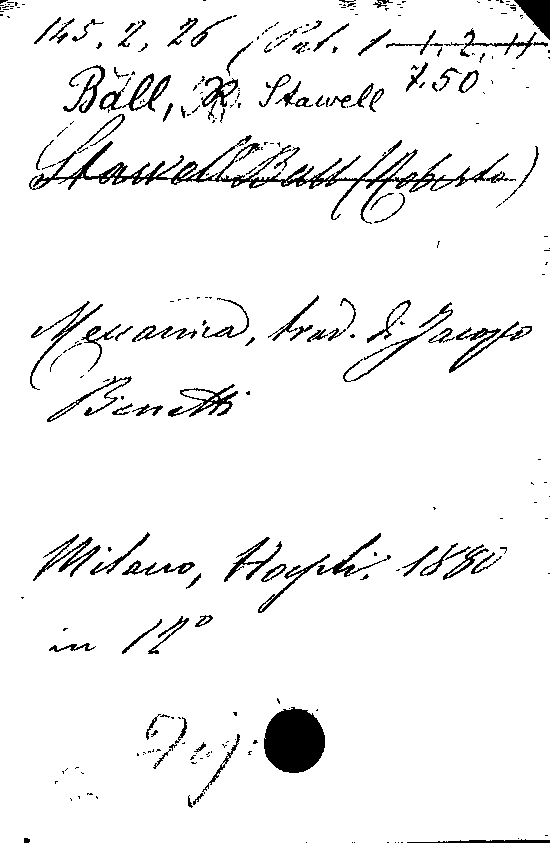 145. 2. 26 (Pat. 1 1. 2. 11
Ball, R. Stawell 7.50
Stawell Ball (Roberto)
Meccanica, trad. di Jacopo
Benetti
Milano, Hoepli. 1880
in 12º
Fig: